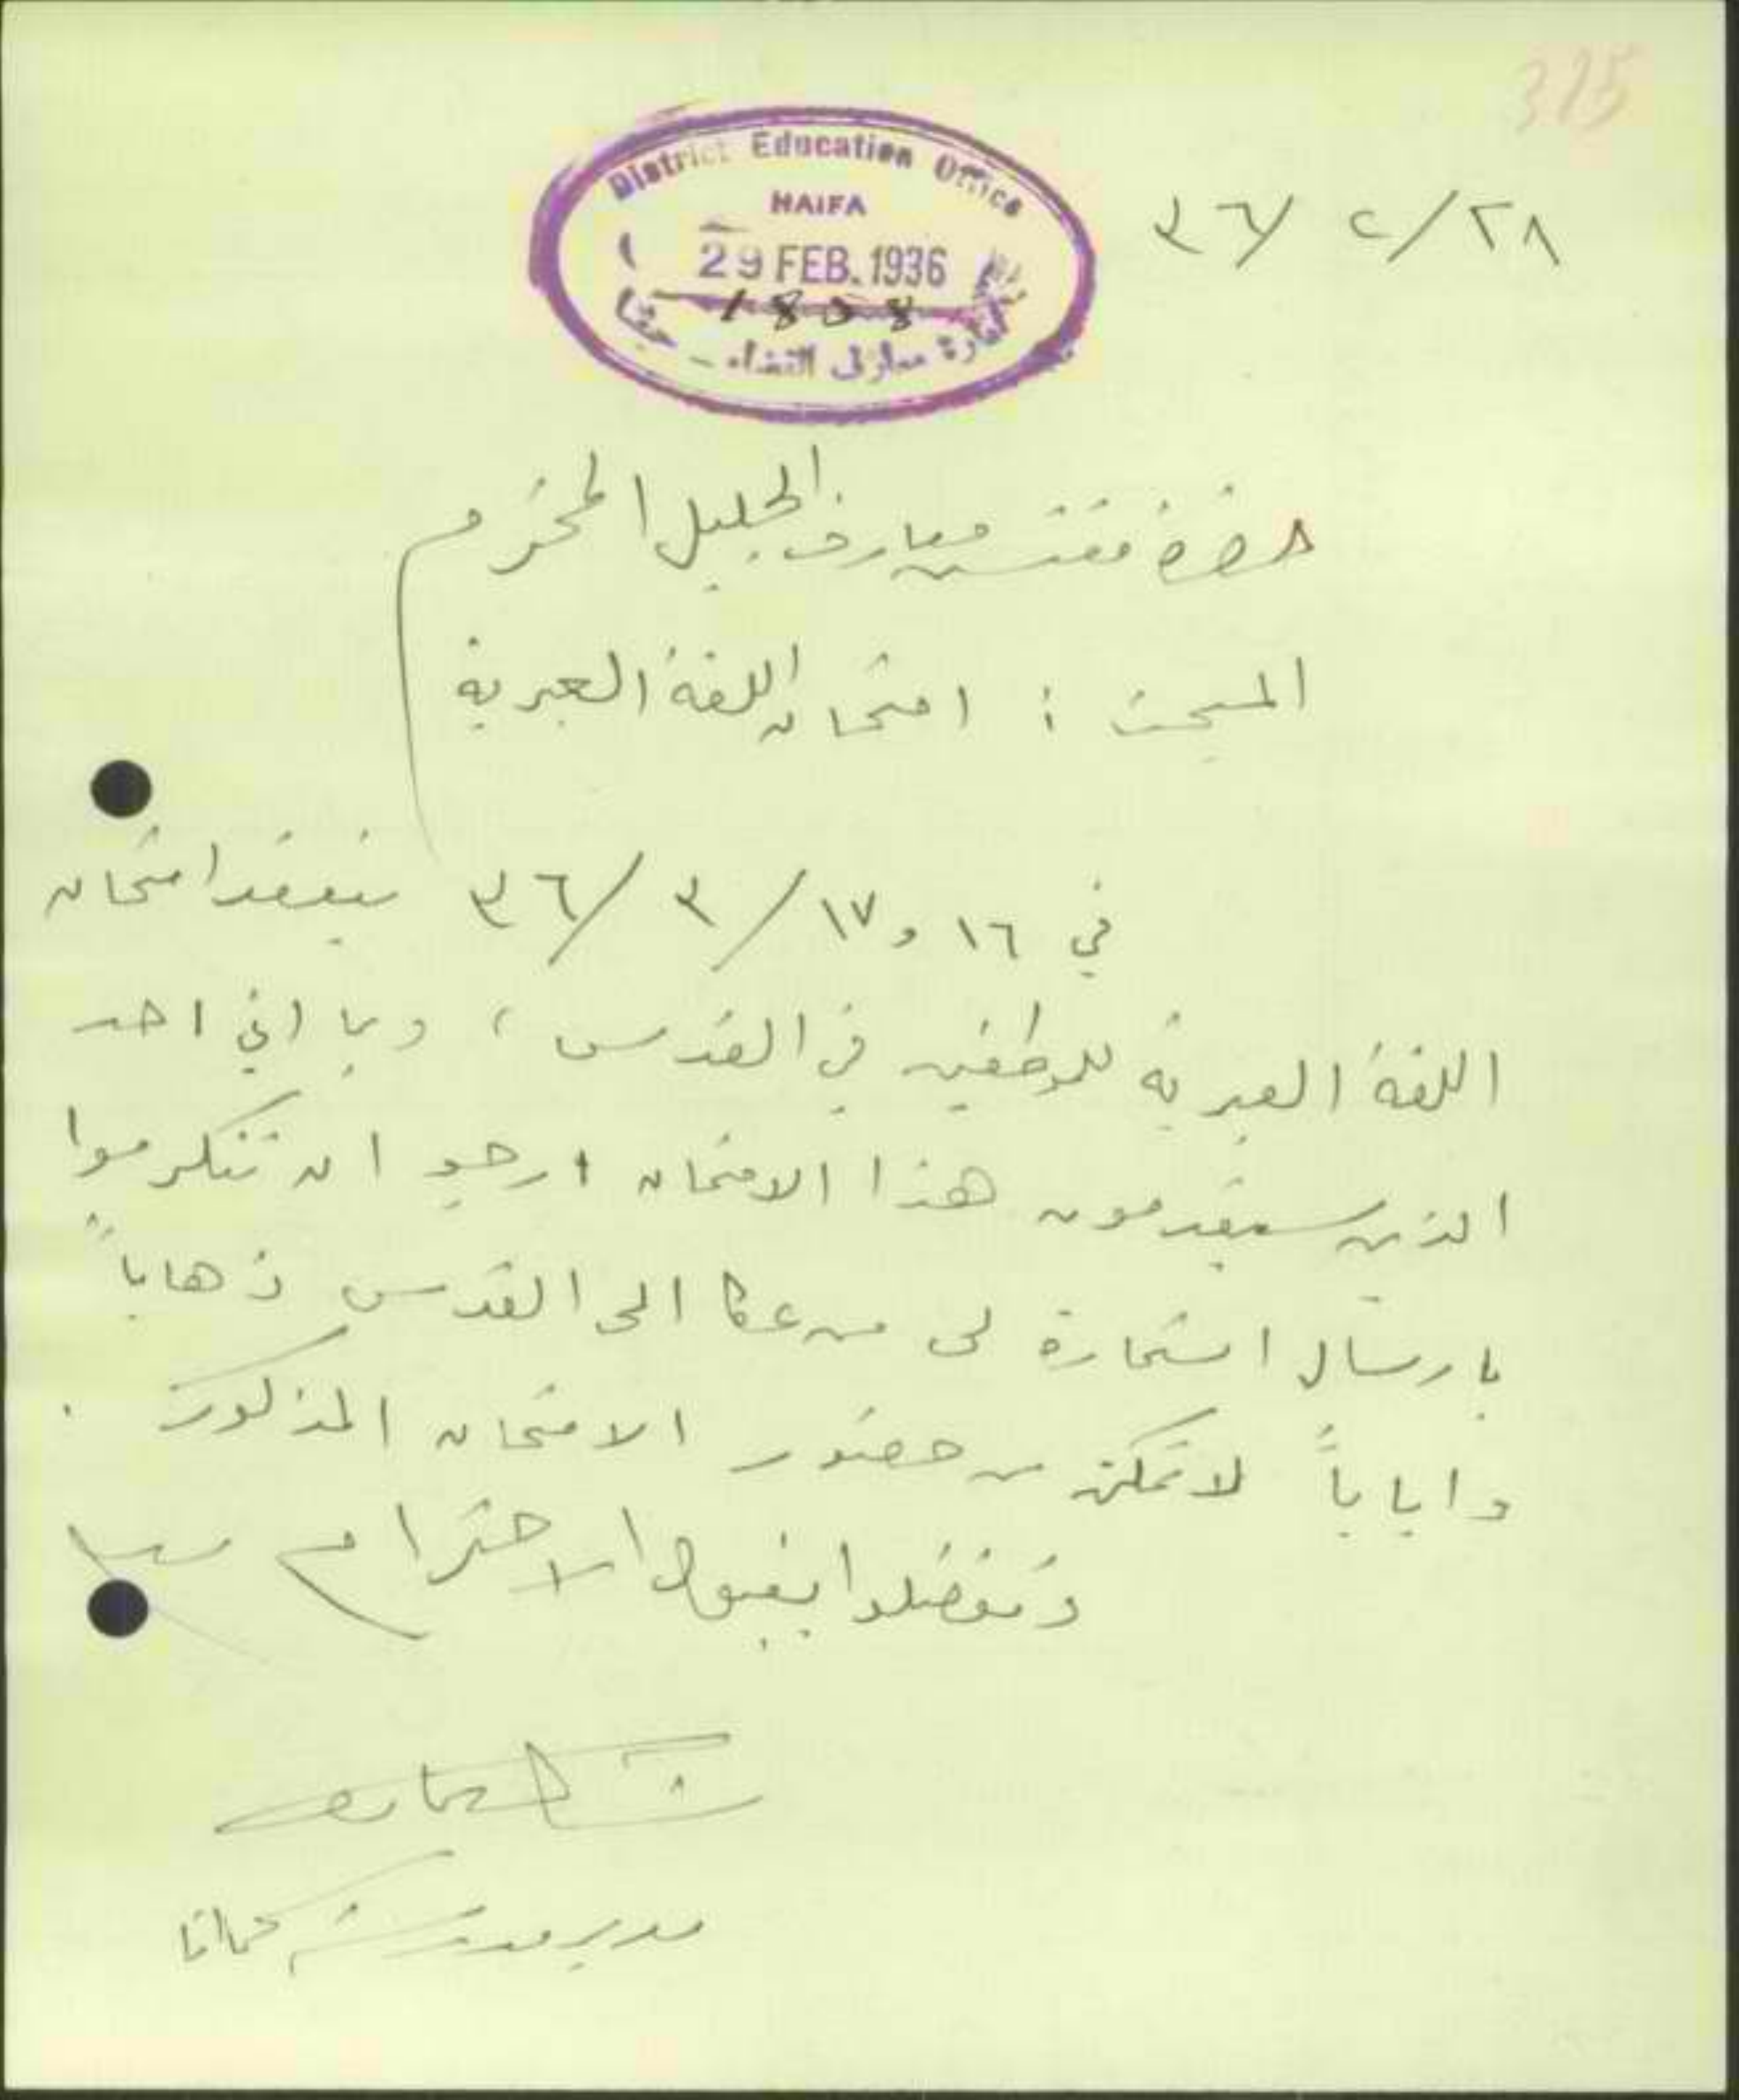 315
District Education Office
HAIFA
29 FEB. 1936
1808
ادارة معارف القضاء - حيفا
٢٨/ ٢/ ٣٦
حضرة مفتش معارف الجليل المحترم
المبحث : امتحان اللغة العبرية
في ١٦ و ١٧/ ٣/ ٣٦ سيعقد امتحان
اللغة العبرية للموظفين في القدس ، وبما اني احد
الذين سيقدمون هذا الامتحان ارجو ان تتكرموا
بارسال استمارة لي من عكا الى القدس ذهاباً
واياباً لاتمكن من حضور الامتحان المذكور .
وتفضلوا بقبول الاحترام سيدي
مدير مدرسة